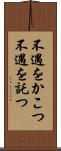 不遇をかこつ
不遇を託つ